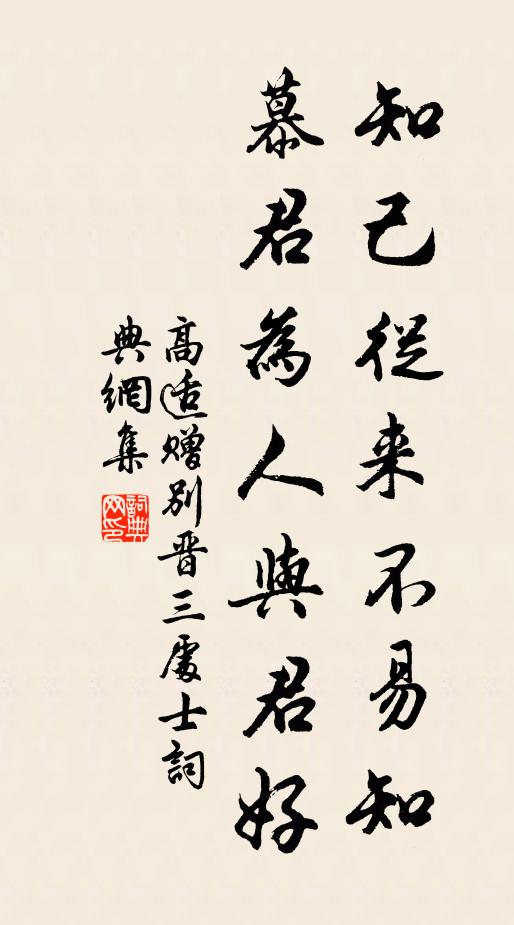 知己從来不易知
慕君為人與君好
高适贈别晋三處士詞
典網集
詞典網印